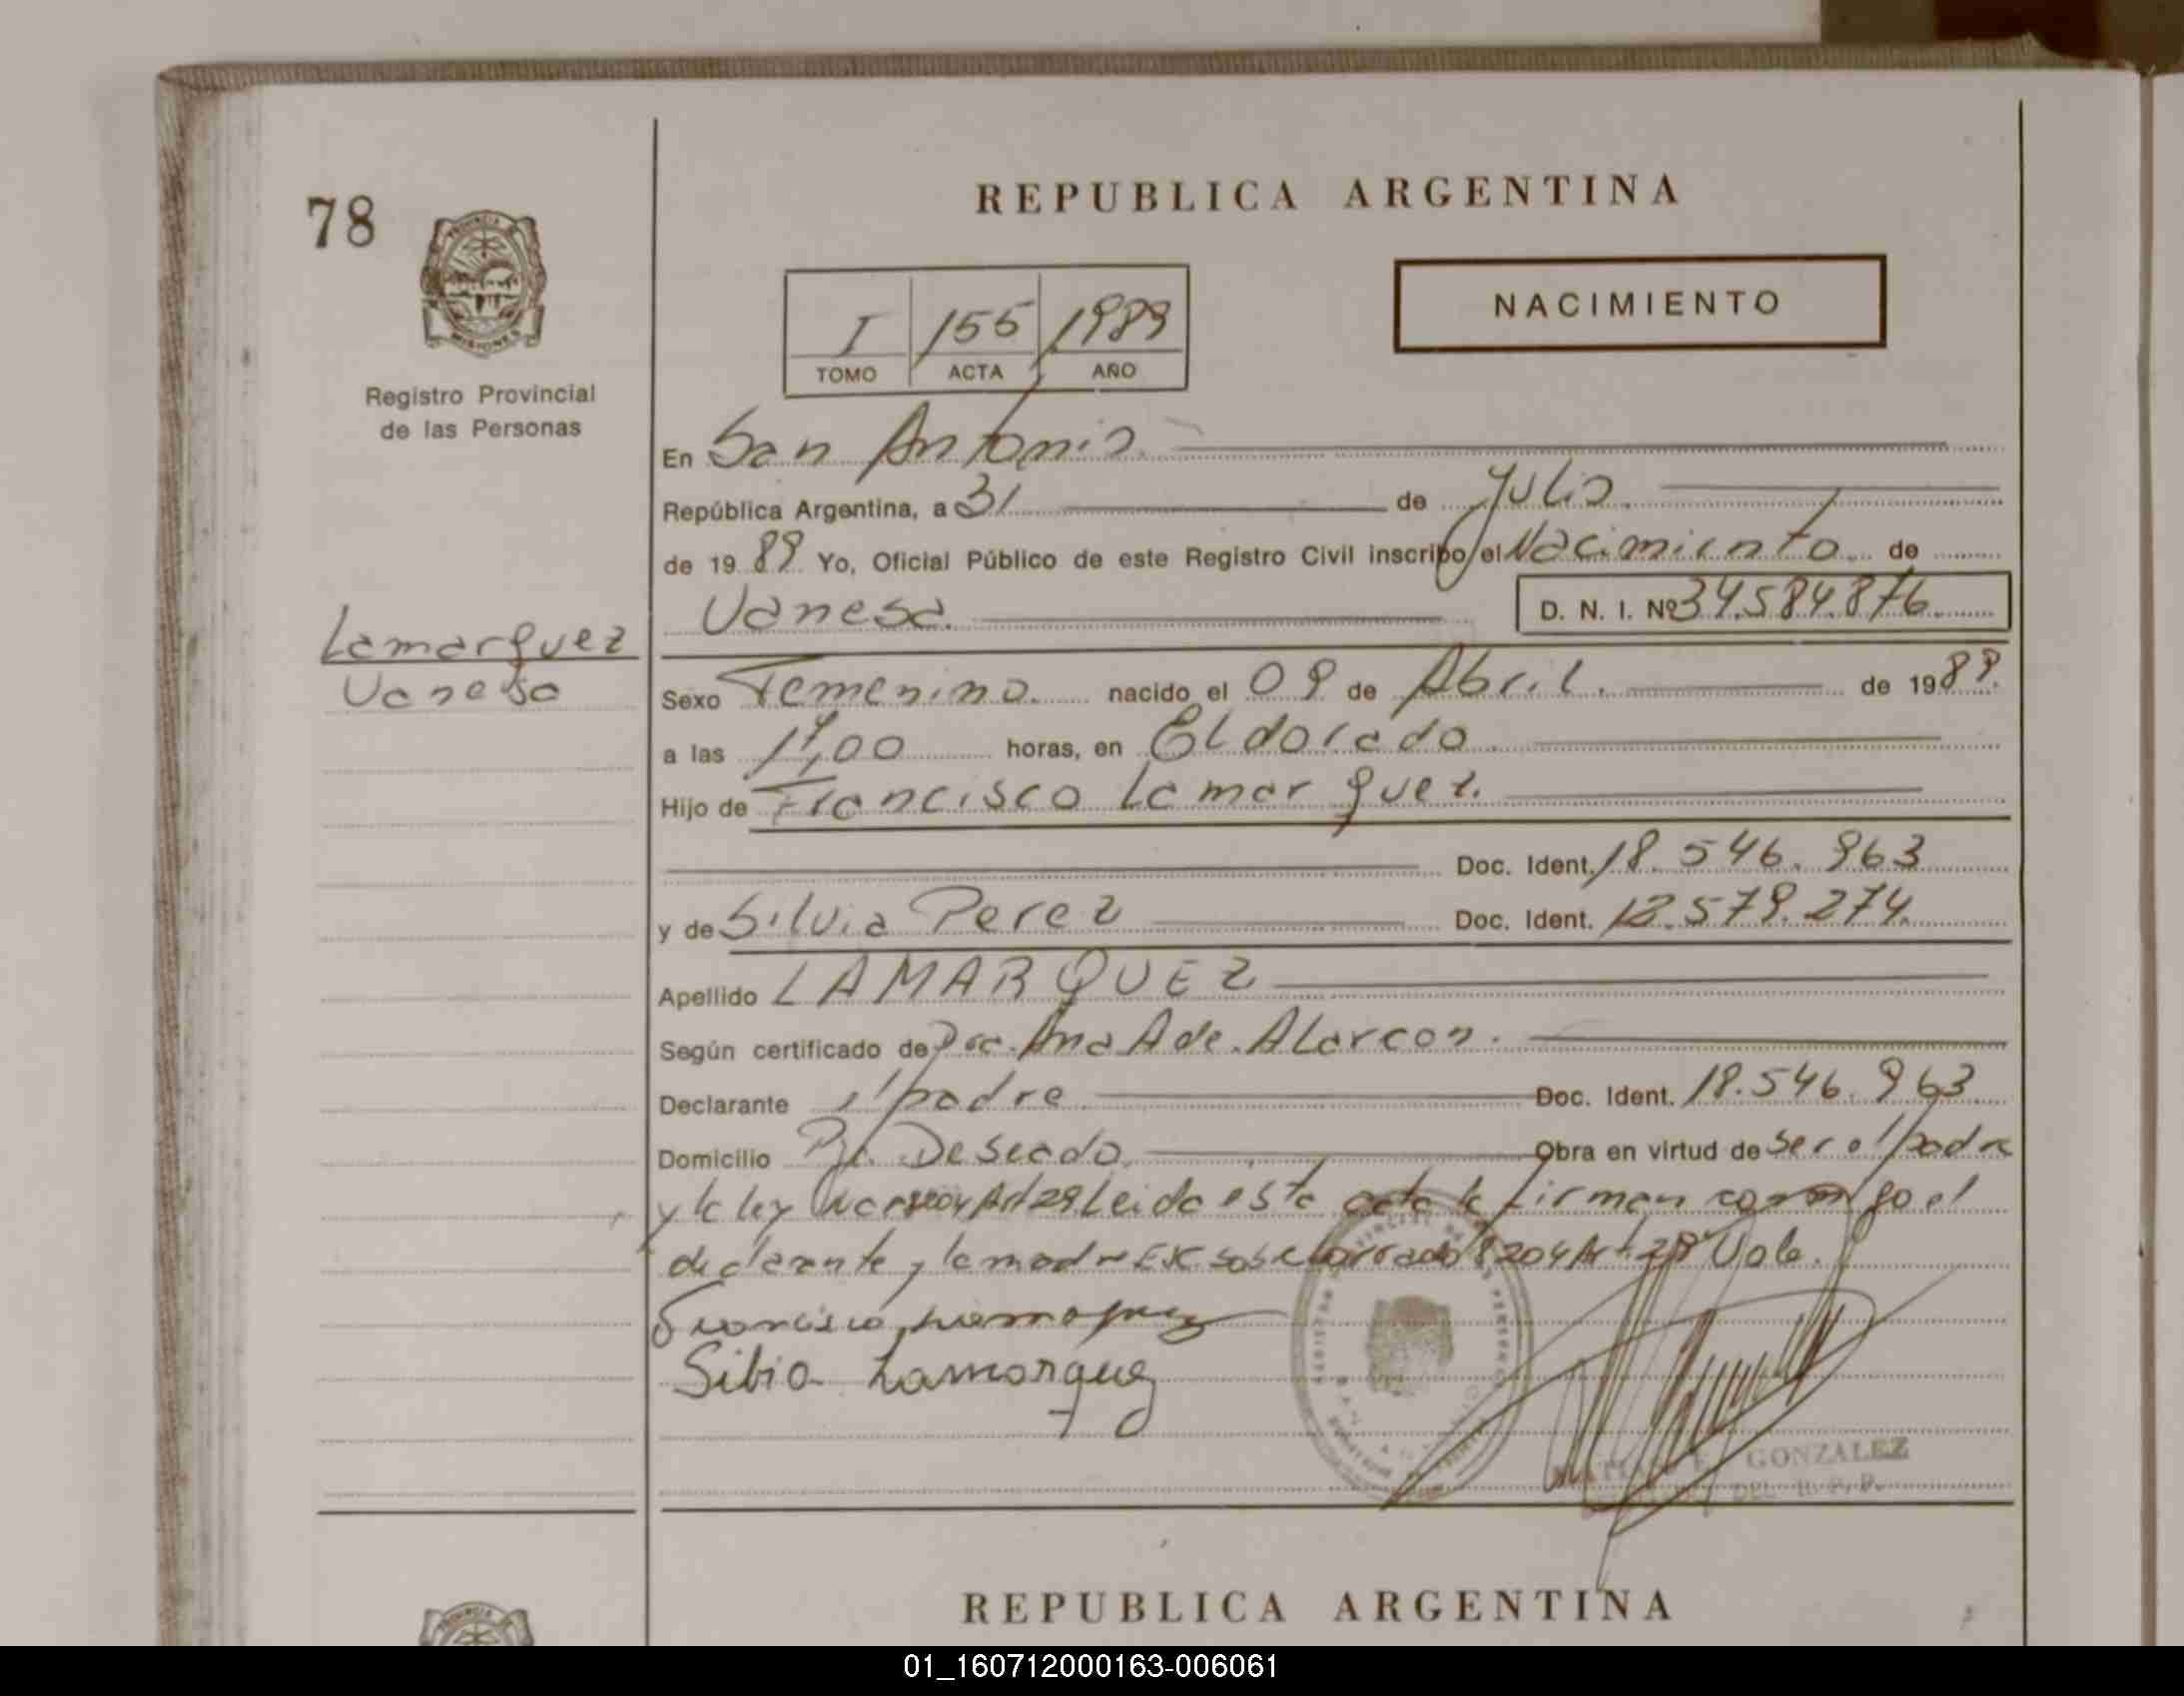 REPUBLICA ARGENTINA
78
NACIMIENTO
I 155 1989
TOMO ACTA AÑO
Registro Provincial
de las Personas
MISIONES
En San Antonio.
República Argentina, a 31 de Julio.
de 1989 Yo, Oficial Público de este Registro Civil inscribo el Nacimiento de
Vanesa. D. N. I. Nº 34.584.876
Lamarquez
Vanesa
Sexo Femenino. nacido el 09 de Abril. de 1989.
a las 19,00 horas, en Eldorado.
Hijo de Francisco Lamarquez.
Doc. Ident. 18.546.963
y de Silvia Perez Doc. Ident. 12.579.274.
Apellido LAMARQUEZ
Según certificado de Dra. Ana A de Alarcon.
Declarante el padre Doc. Ident. 18.546.963
Domicilio Pje. Deseado. Obra en virtud de ser el padre
y la ley Art 29 Leida esta acta la firman conmigo el
declarante y la madre Ex sobre borrado 8204 Art. 29 Vale.
Francisco Lamarquez
Silvia Lamarquez
GONZALEZ
DEL R. P. P.
REPUBLICA ARGENTINA
01_160712000163-006061